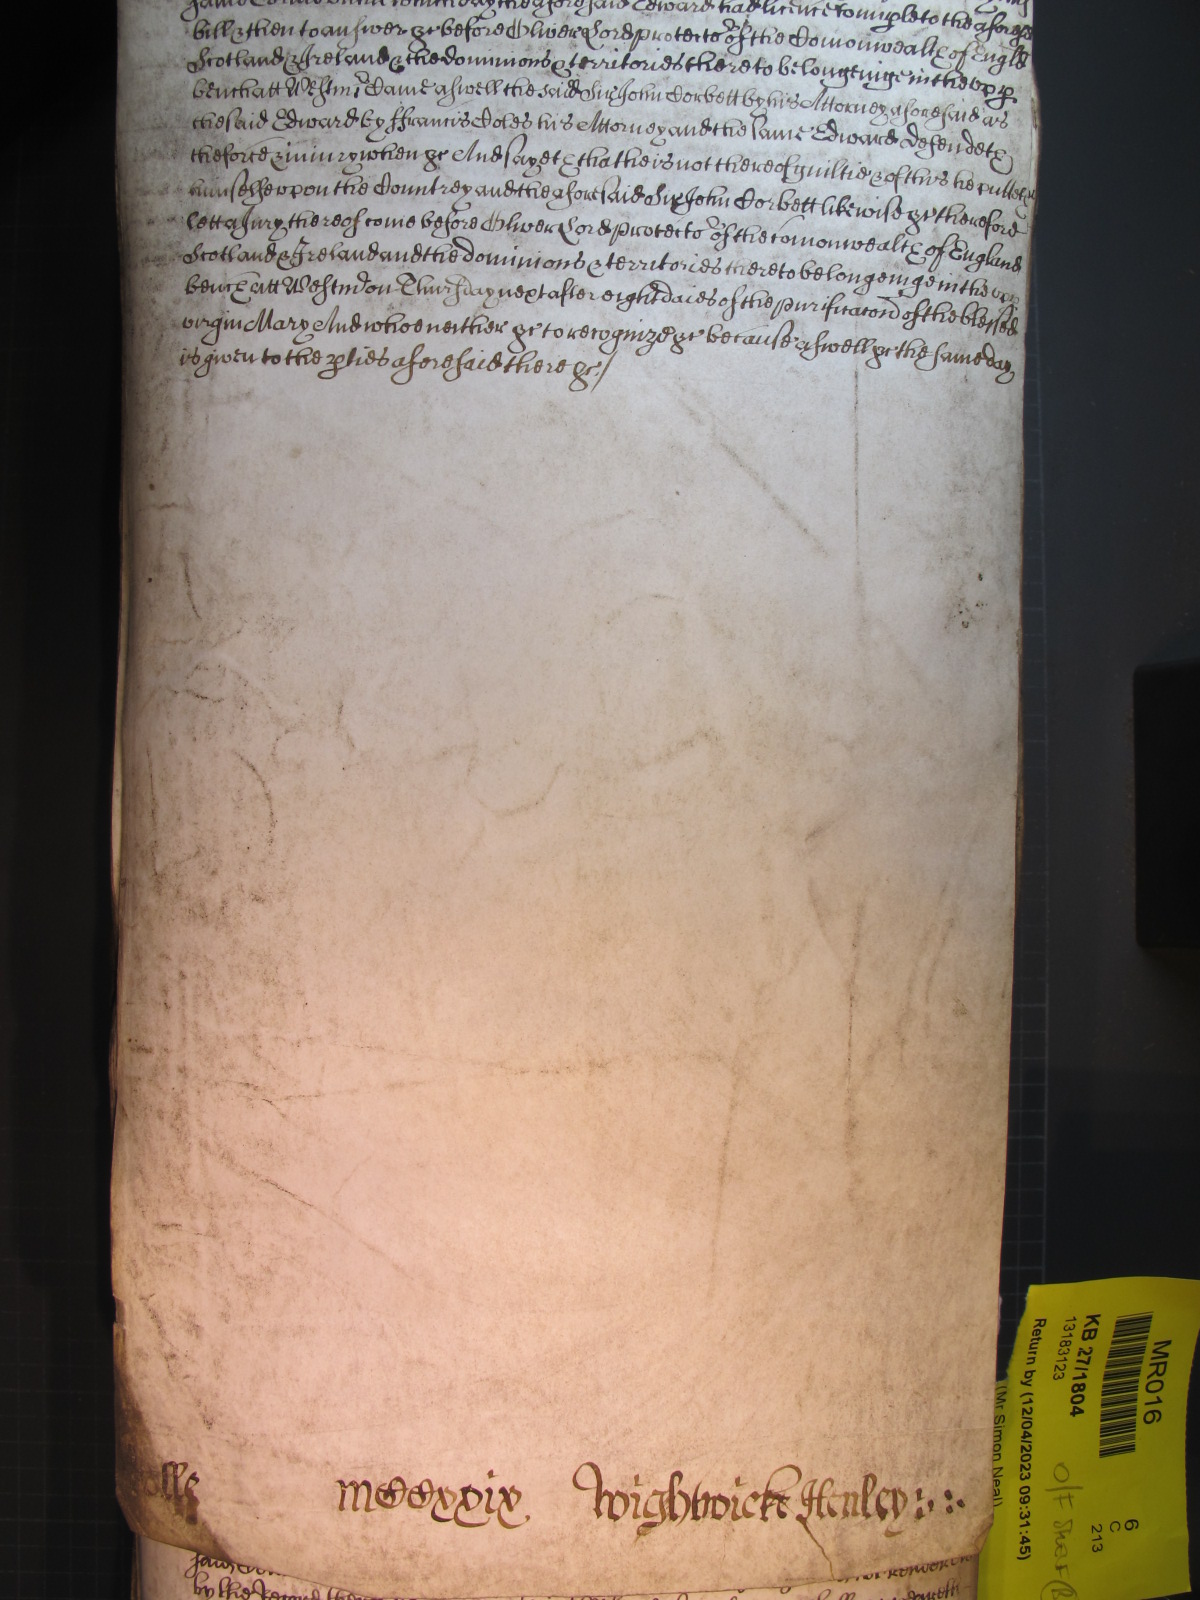 same day the aforesaid Edward had licence to imple to the aforesd
bill & then to answer &c before Oliver Lord protector of the Comonwealth of Engld
Scotland & Ireland & the dominions & territories thereto belonginge in the upp
bench att Westmr Came aswell the said Sir John Corbett by his Attorney aforesaid as
the said Edward by ffrancis Coles his Attorney and the same Edward defendeth
the force & iniury when &c And sayeth that he is not thereof guiltie & of this he putteth
himselfe upon the Countrey and the aforesaid Sir John Corbett likewise &c therefore
lett a Jury thereof come before Oliver Lord protector of the comonwealth of England
Scotland & Ireland and the dominions & territories thereto belongeinge in the upp
bench att Westmr on Thursday next after eight daies of the purificaton of the blessed
virgin Mary And who neither &c to recognize &c because aswell &c the same day
is given to the pties aforesaid there &c/
olls mccxxix Wightwicke Henley
by the
MR016
KB 27/1804
13183123
Return by (12/04/2023 09:31:45)
(Mr Simon Neal)
6
C
213